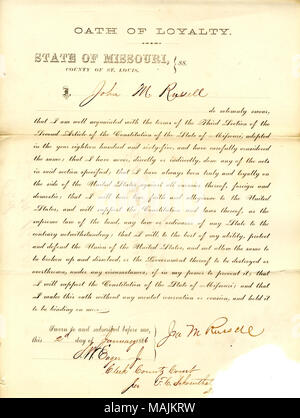 OATH OF LOYALTY.
STATE OF MISSOURI, } SS.
COUNTY OF ST. LOUIS.
I, John M Russell
do solemnly swear,
that I am well acquainted with the terms of the Third Section of the
Second Article of the Constitution of the State of Missouri, adopted
in the year eighteen hundred and sixty-five, and have carefully considered
the same; that I have never, directly or indirectly, done any of the acts
in said section specified; that I have always been truly and loyally
on the side of the United States against all enemies thereof, foreign and
domestic; that I will bear true faith and allegiance to the United
States, and will support the Constitution and laws thereof, as the
supreme law of the land, any law or ordinance of any State to the
contrary notwithstanding; that I will, to the best of my ability, protect
and defend the Union of the United States, and not allow the same
to be broken up and dissolved, or the Government thereof to be destroyed or
overthrown, under any circumstances, if in my power to prevent it; that I
will support the Constitution of the State of Missouri; and that I
make this oath without any mental reservation or evasion, and hold it
to be binding on me.
Sworn to and subscribed before me,
this 2d day of January 186
Jno M Russell
Clerk County Court
alamy
Image ID: MAJKRW
www.alamy.com